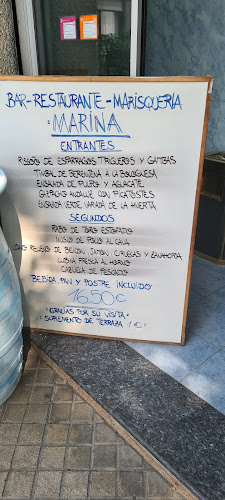 BAR-RESTAURANTE-MARISQUERIA
MARINA
ENTRANTES
RISOTTO DE ESPARRAGOS TRIGUEROS Y GAMBAS
TIMBAL DE BERENJENA A LA BOLOGNESA
ENSALADA DE PULPO Y AGUACATE
GAZPACHO ANDALUZ CON PICATOSTES
ENSALADA VERDE VARIADA DE LA HUERTA
SEGUNDOS
RABO DE TORO ESTOFADO
MUSLO DE POLLO AL CAVA
LOMO RELLENO DE BACON, JAMON, CIRUELAS Y ZANAHORIA
LUBINA FRESCA AL HORNO
CAZUELA DE PESCADO
BEBIDA, PAN Y POSTRE INCLUIDO
16,50€
GRACIAS POR SU VISITA
SUPLEMENTO DE TERRAZA 1€